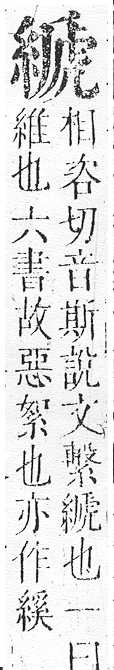 縰
相咨切音斯說文繫縰也一曰
維也六書故惡絮也亦作縘